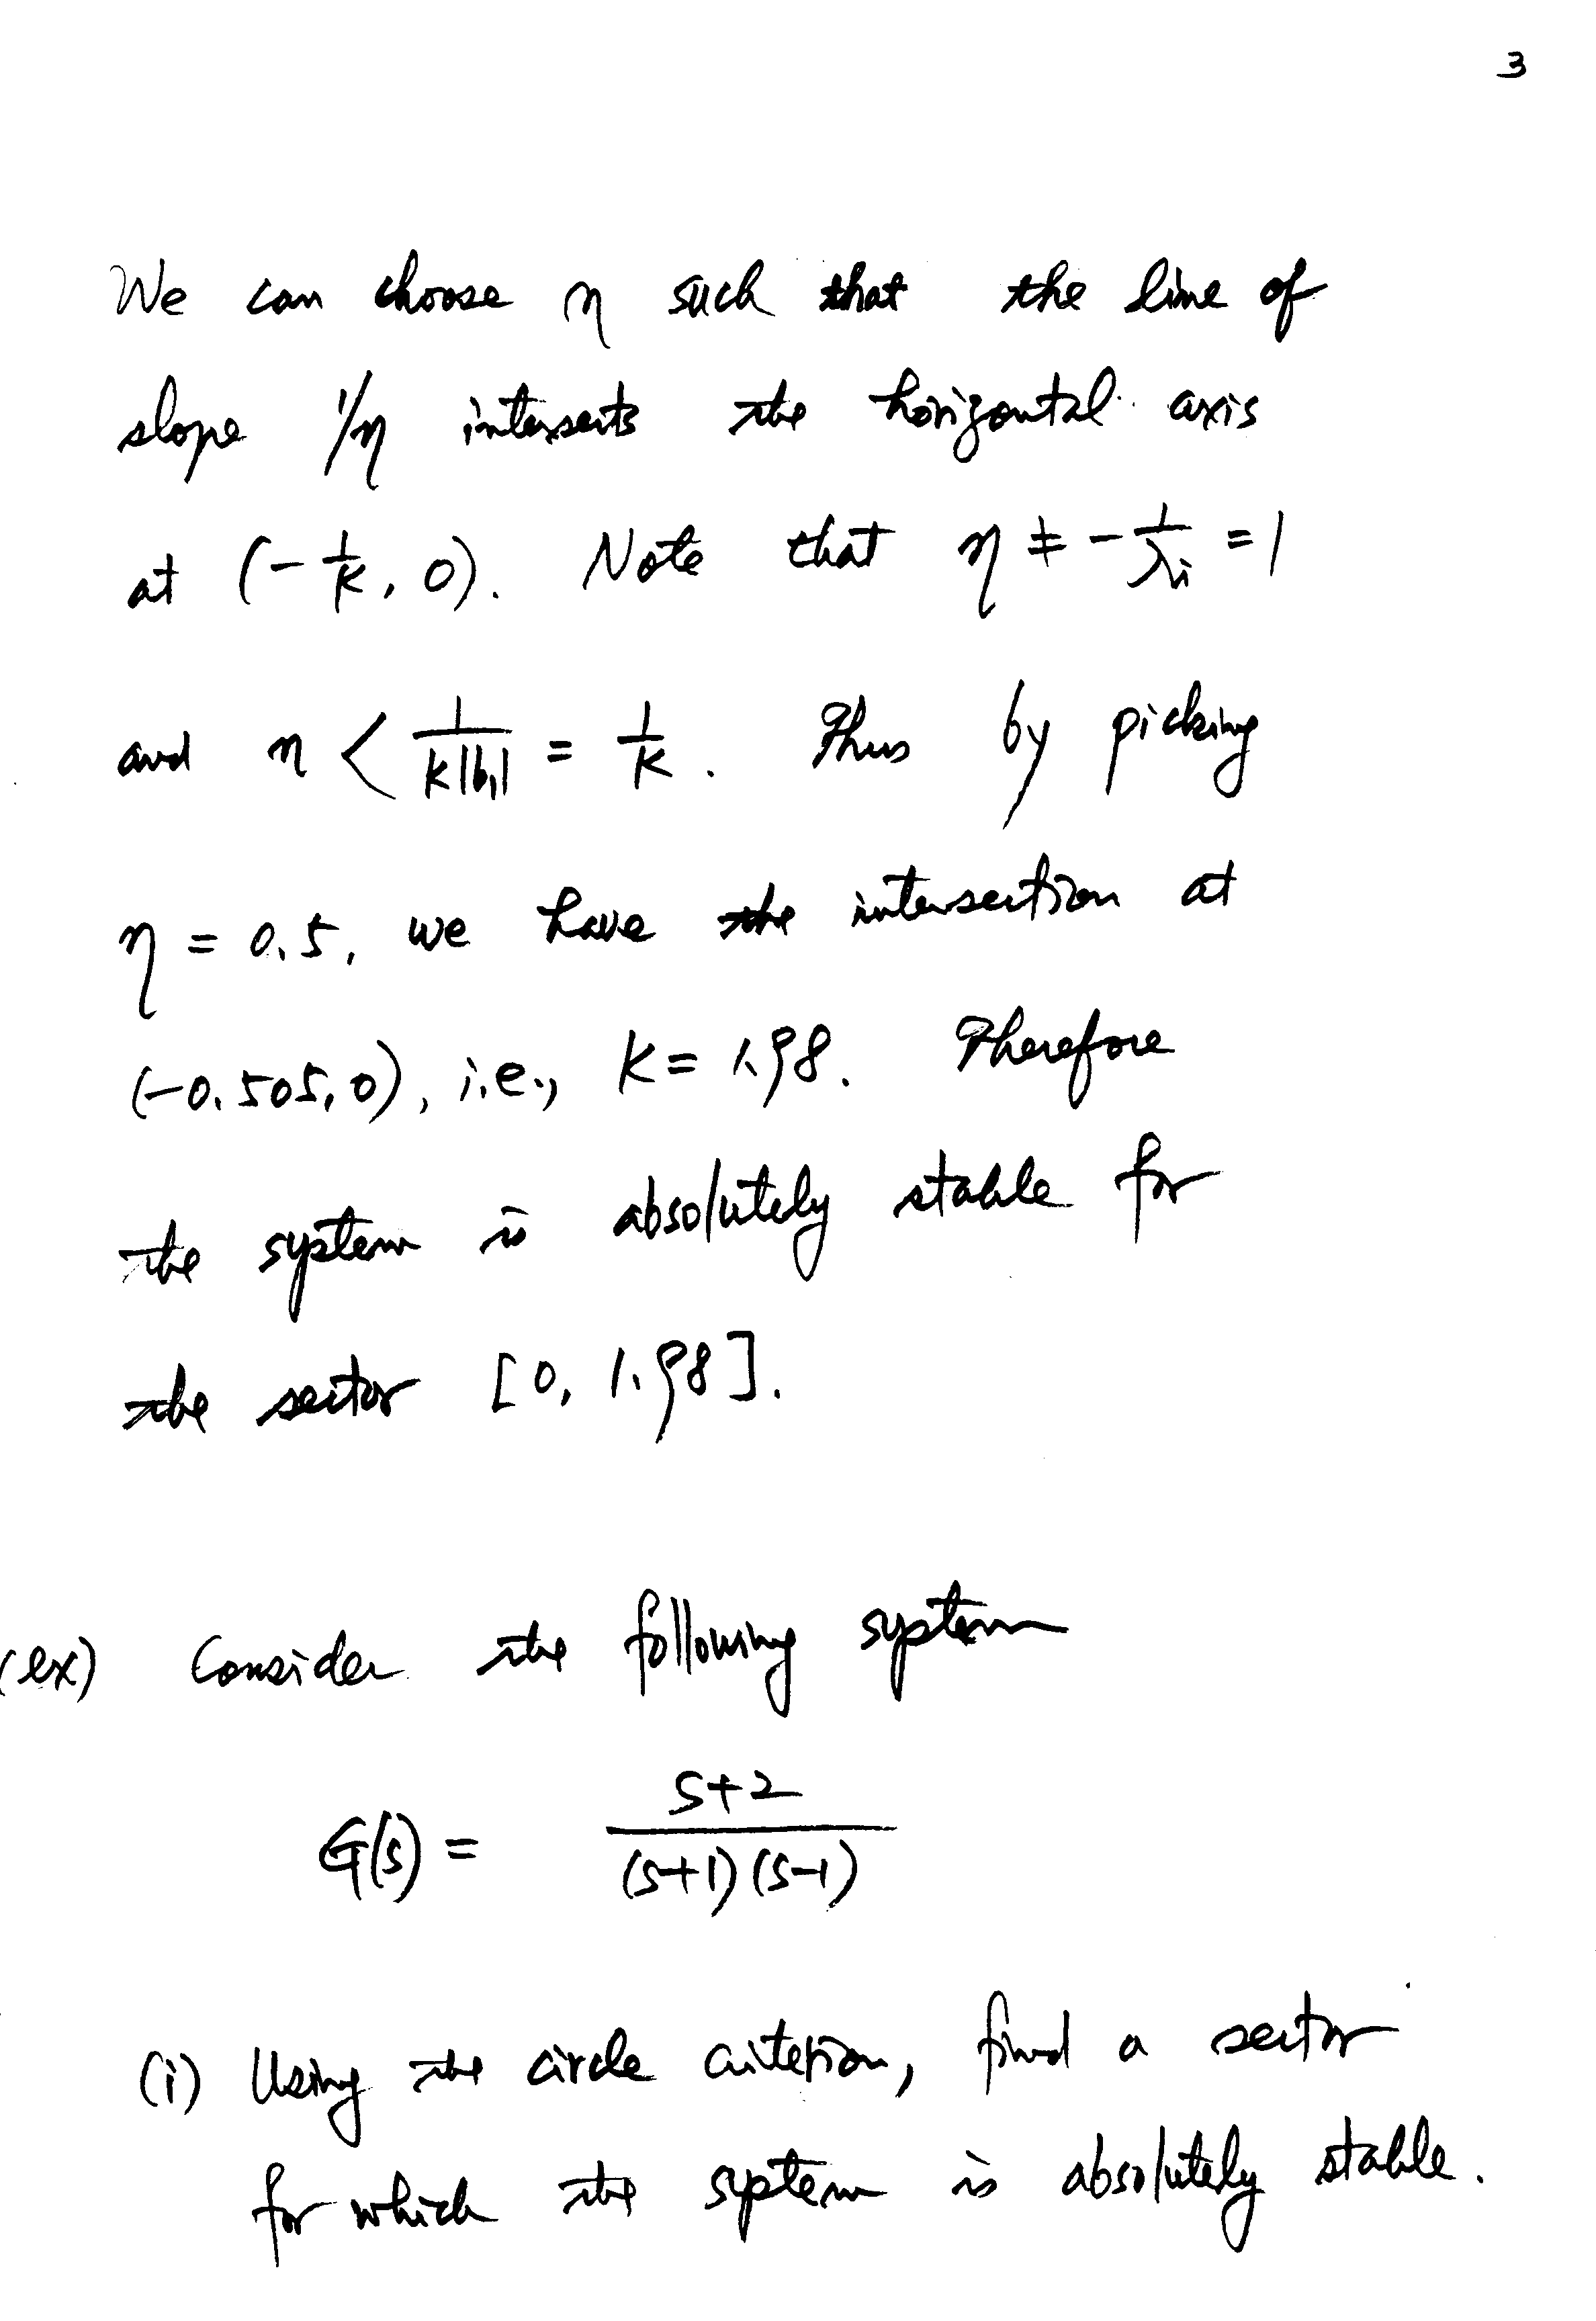 3
We can choose η such that the line of
slope 1/η intersects the horizontal axis
at (-1/k, 0). Note that η ≠ -1/λi = 1
and η < 1/(k|b1|) = 1/k. Thus by picking
η = 0.5, we have the intersection at
(-0.505, 0), i.e., k = 1.98. Therefore
the system is absolutely stable for
the sector [0, 1.98].
(ex) Consider the following system
G(s) = (s+2)/((s+1)(s-1))
(i) Using the circle criterion, find a sector
for which the system is absolutely stable.